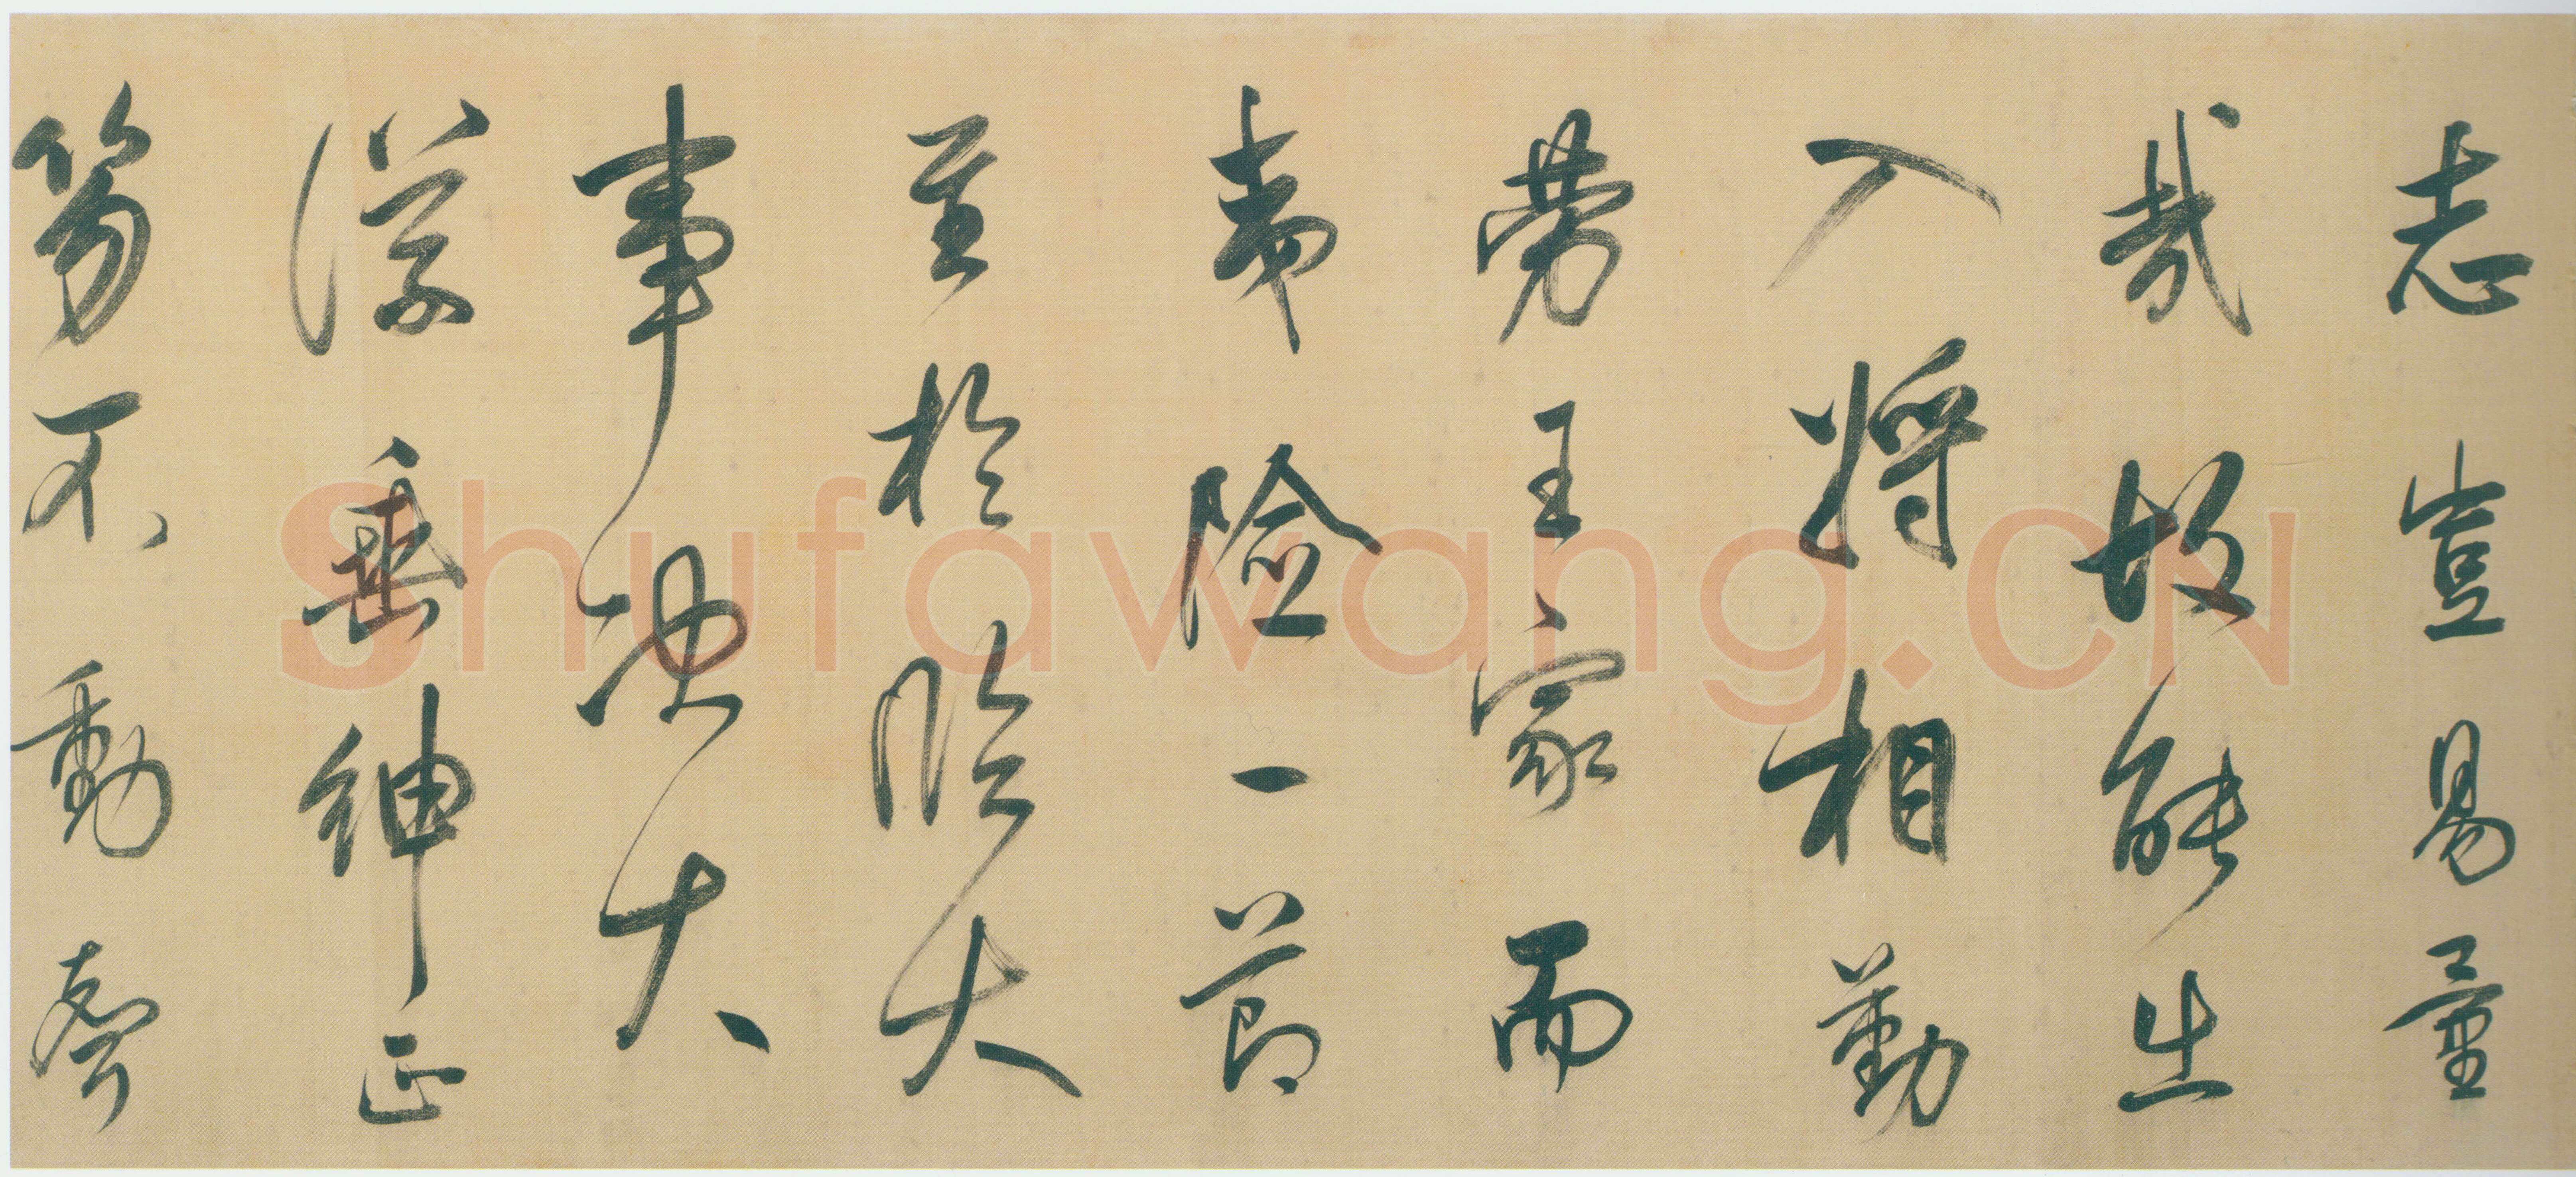 志豈易量
哉故能出
入將相勤
勞王家而
夷險一節
至於臨大
事決大
議垂紳正
笏不動聲
Shufawang.CN